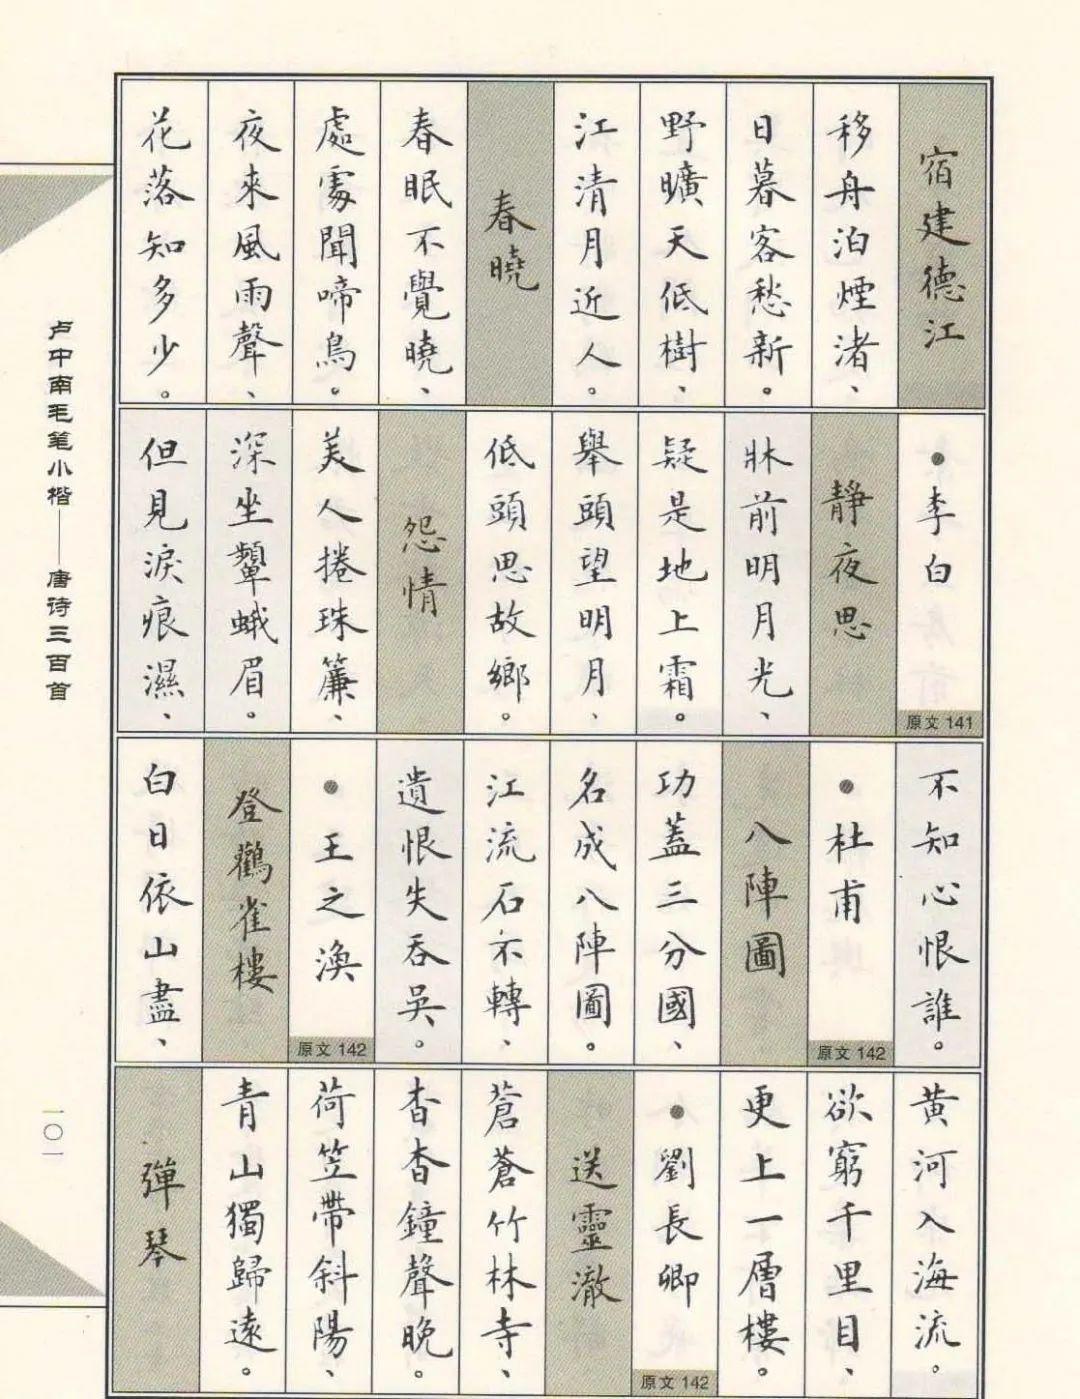 宿建德江
移舟泊煙渚、
日暮客愁新。
野曠天低樹、
江清月近人。
春曉
春眠不覺曉、
處處聞啼鳥。
夜來風雨聲、
花落知多少。
●李白
原文 141
靜夜思
牀前明月光、
疑是地上霜。
舉頭望明月、
低頭思故鄉。
怨情
美人捲珠簾、
深坐顰蛾眉。
但見淚痕濕、
不知心恨誰。
●杜甫
原文 142
八陣圖
功蓋三分國、
名成八陣圖。
江流石不轉、
遺恨失吞吳。
●王之渙
原文 142
登鸛雀樓
白日依山盡、
黃河入海流。
欲窮千里目、
更上一層樓。
●劉長卿
原文 142
送靈澈
蒼蒼竹林寺、
杳杳鐘聲晚。
荷笠帶斜陽、
青山獨歸遠。
彈琴
卢中南毛笔小楷——唐诗三百首
一〇一